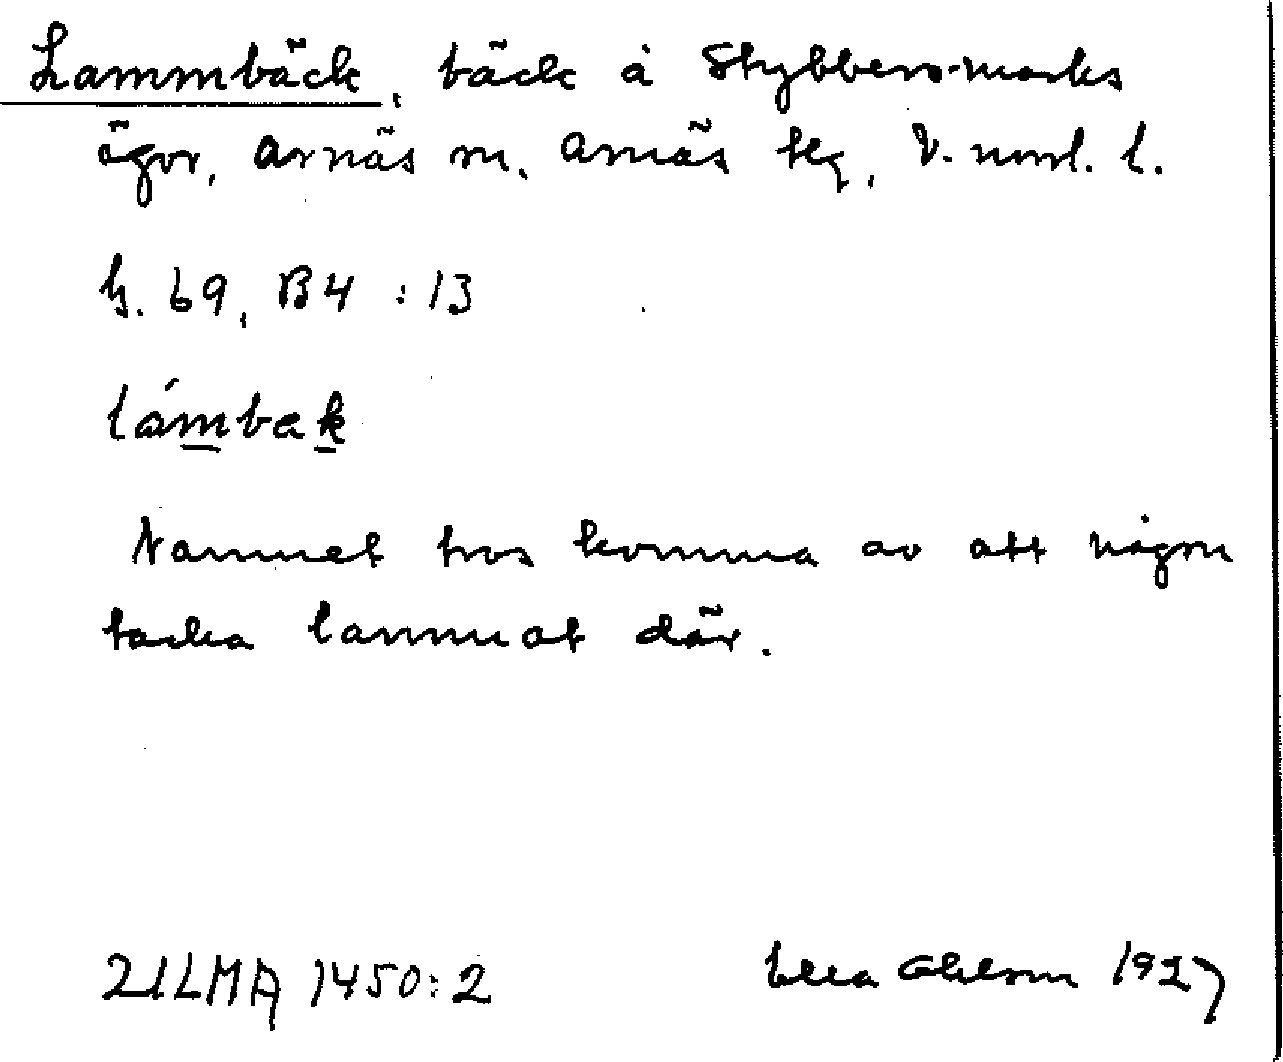 Lammbäck, bäck å Stybbersmarks
ägor, Arnäs sn. Arnäs tlg, V. norrl. l.
h. 69, B4 : 13
lámbak
Namnet tros komma av att någon
tacka lammat där.
ULMA 1450:2 Ohlson 1927